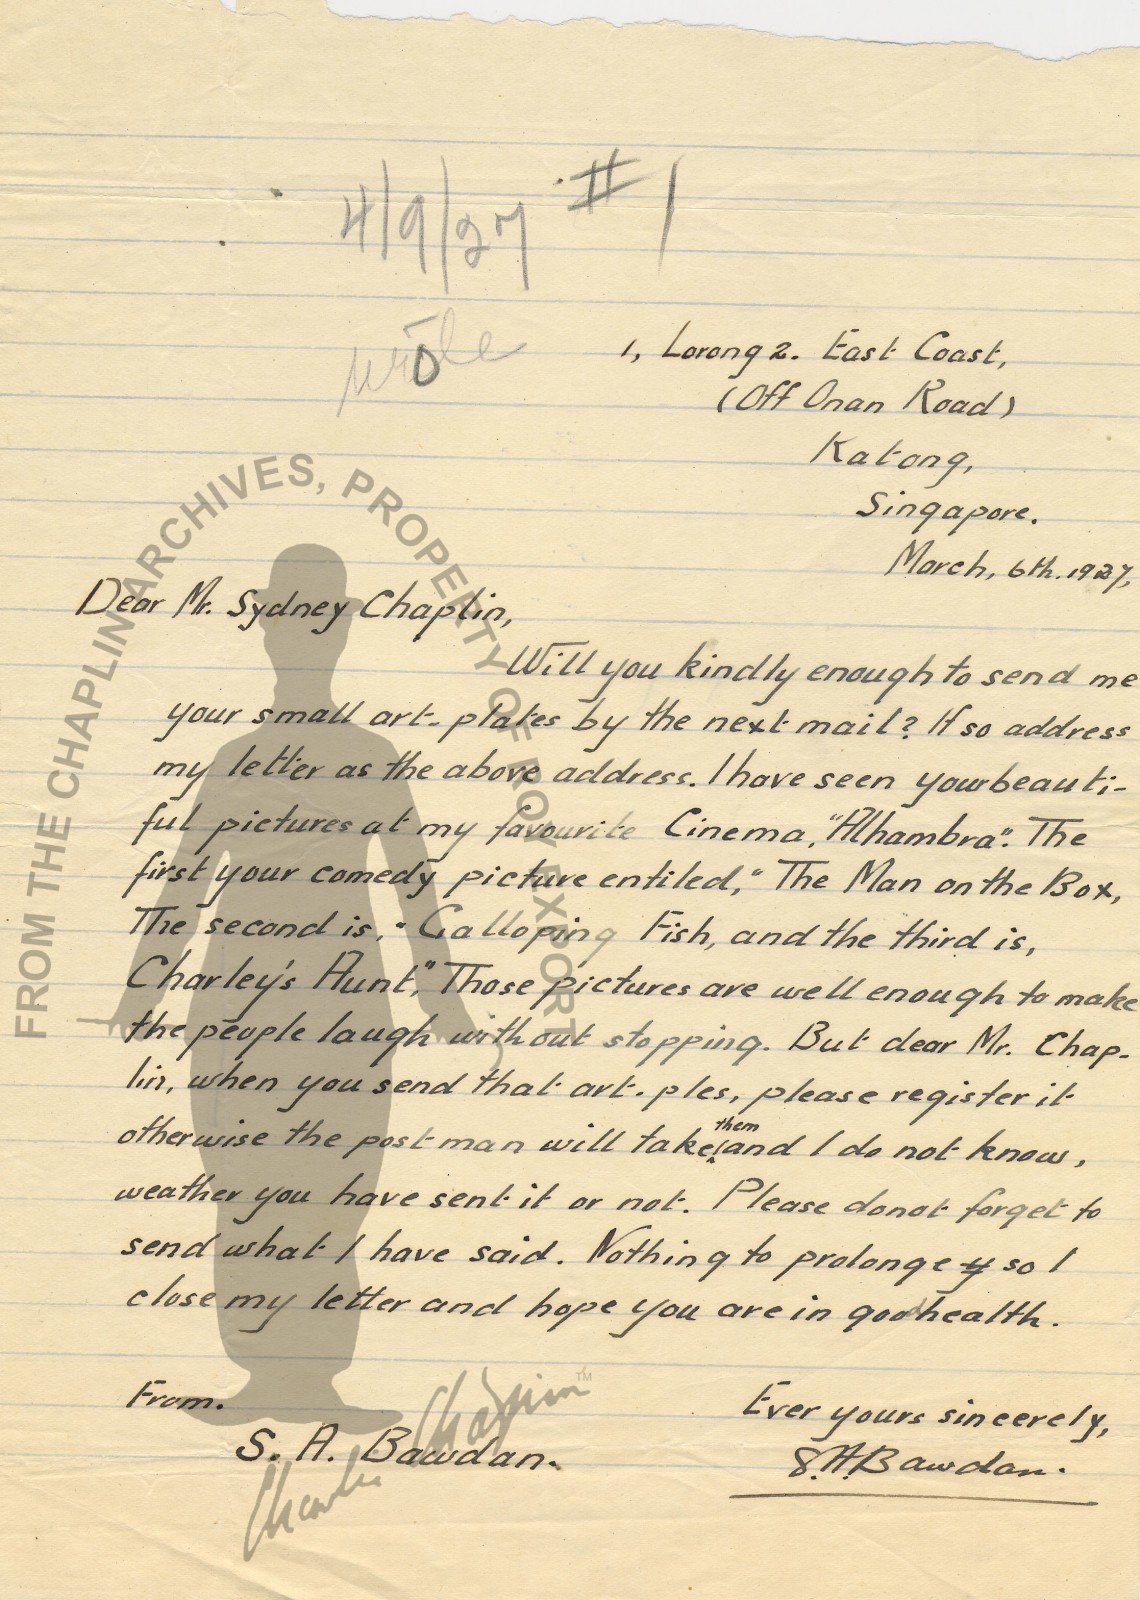 4/9/27 #1
wrote
1, Lorong 2. East Coast,
(Off Onan Road)
Katong,
Singapore.
March, 6th. 1927,
Dear Mr. Sydney Chaplin,
Will you kindly enough to send me
your small art-plates by the next mail? If so address
my letter as the above address. I have seen your beauti-
ful pictures at my favourite Cinema, "Alhambra". The
first your comedy picture entiled, "The Man on the Box,
The second is, "Galloping Fish, and the third is,
Charley's Aunt," Those pictures are well enough to make
the people laugh without stopping. But dear Mr. Chap-
lin, when you send that art-ples, please register it
otherwise the postman will take them and I do not know,
weather you have sent it or not. Please donot forget to
send what I have said. Nothing to prolonge so I
close my letter and hope you are in good health.
From.
S. A. Bawdan.
Ever yours sincerely,
S.A.Bawdan.
FROM THE CHAPLIN ARCHIVES, PROPERTY OF ROY EXPORT
Charlie Chaplin TM